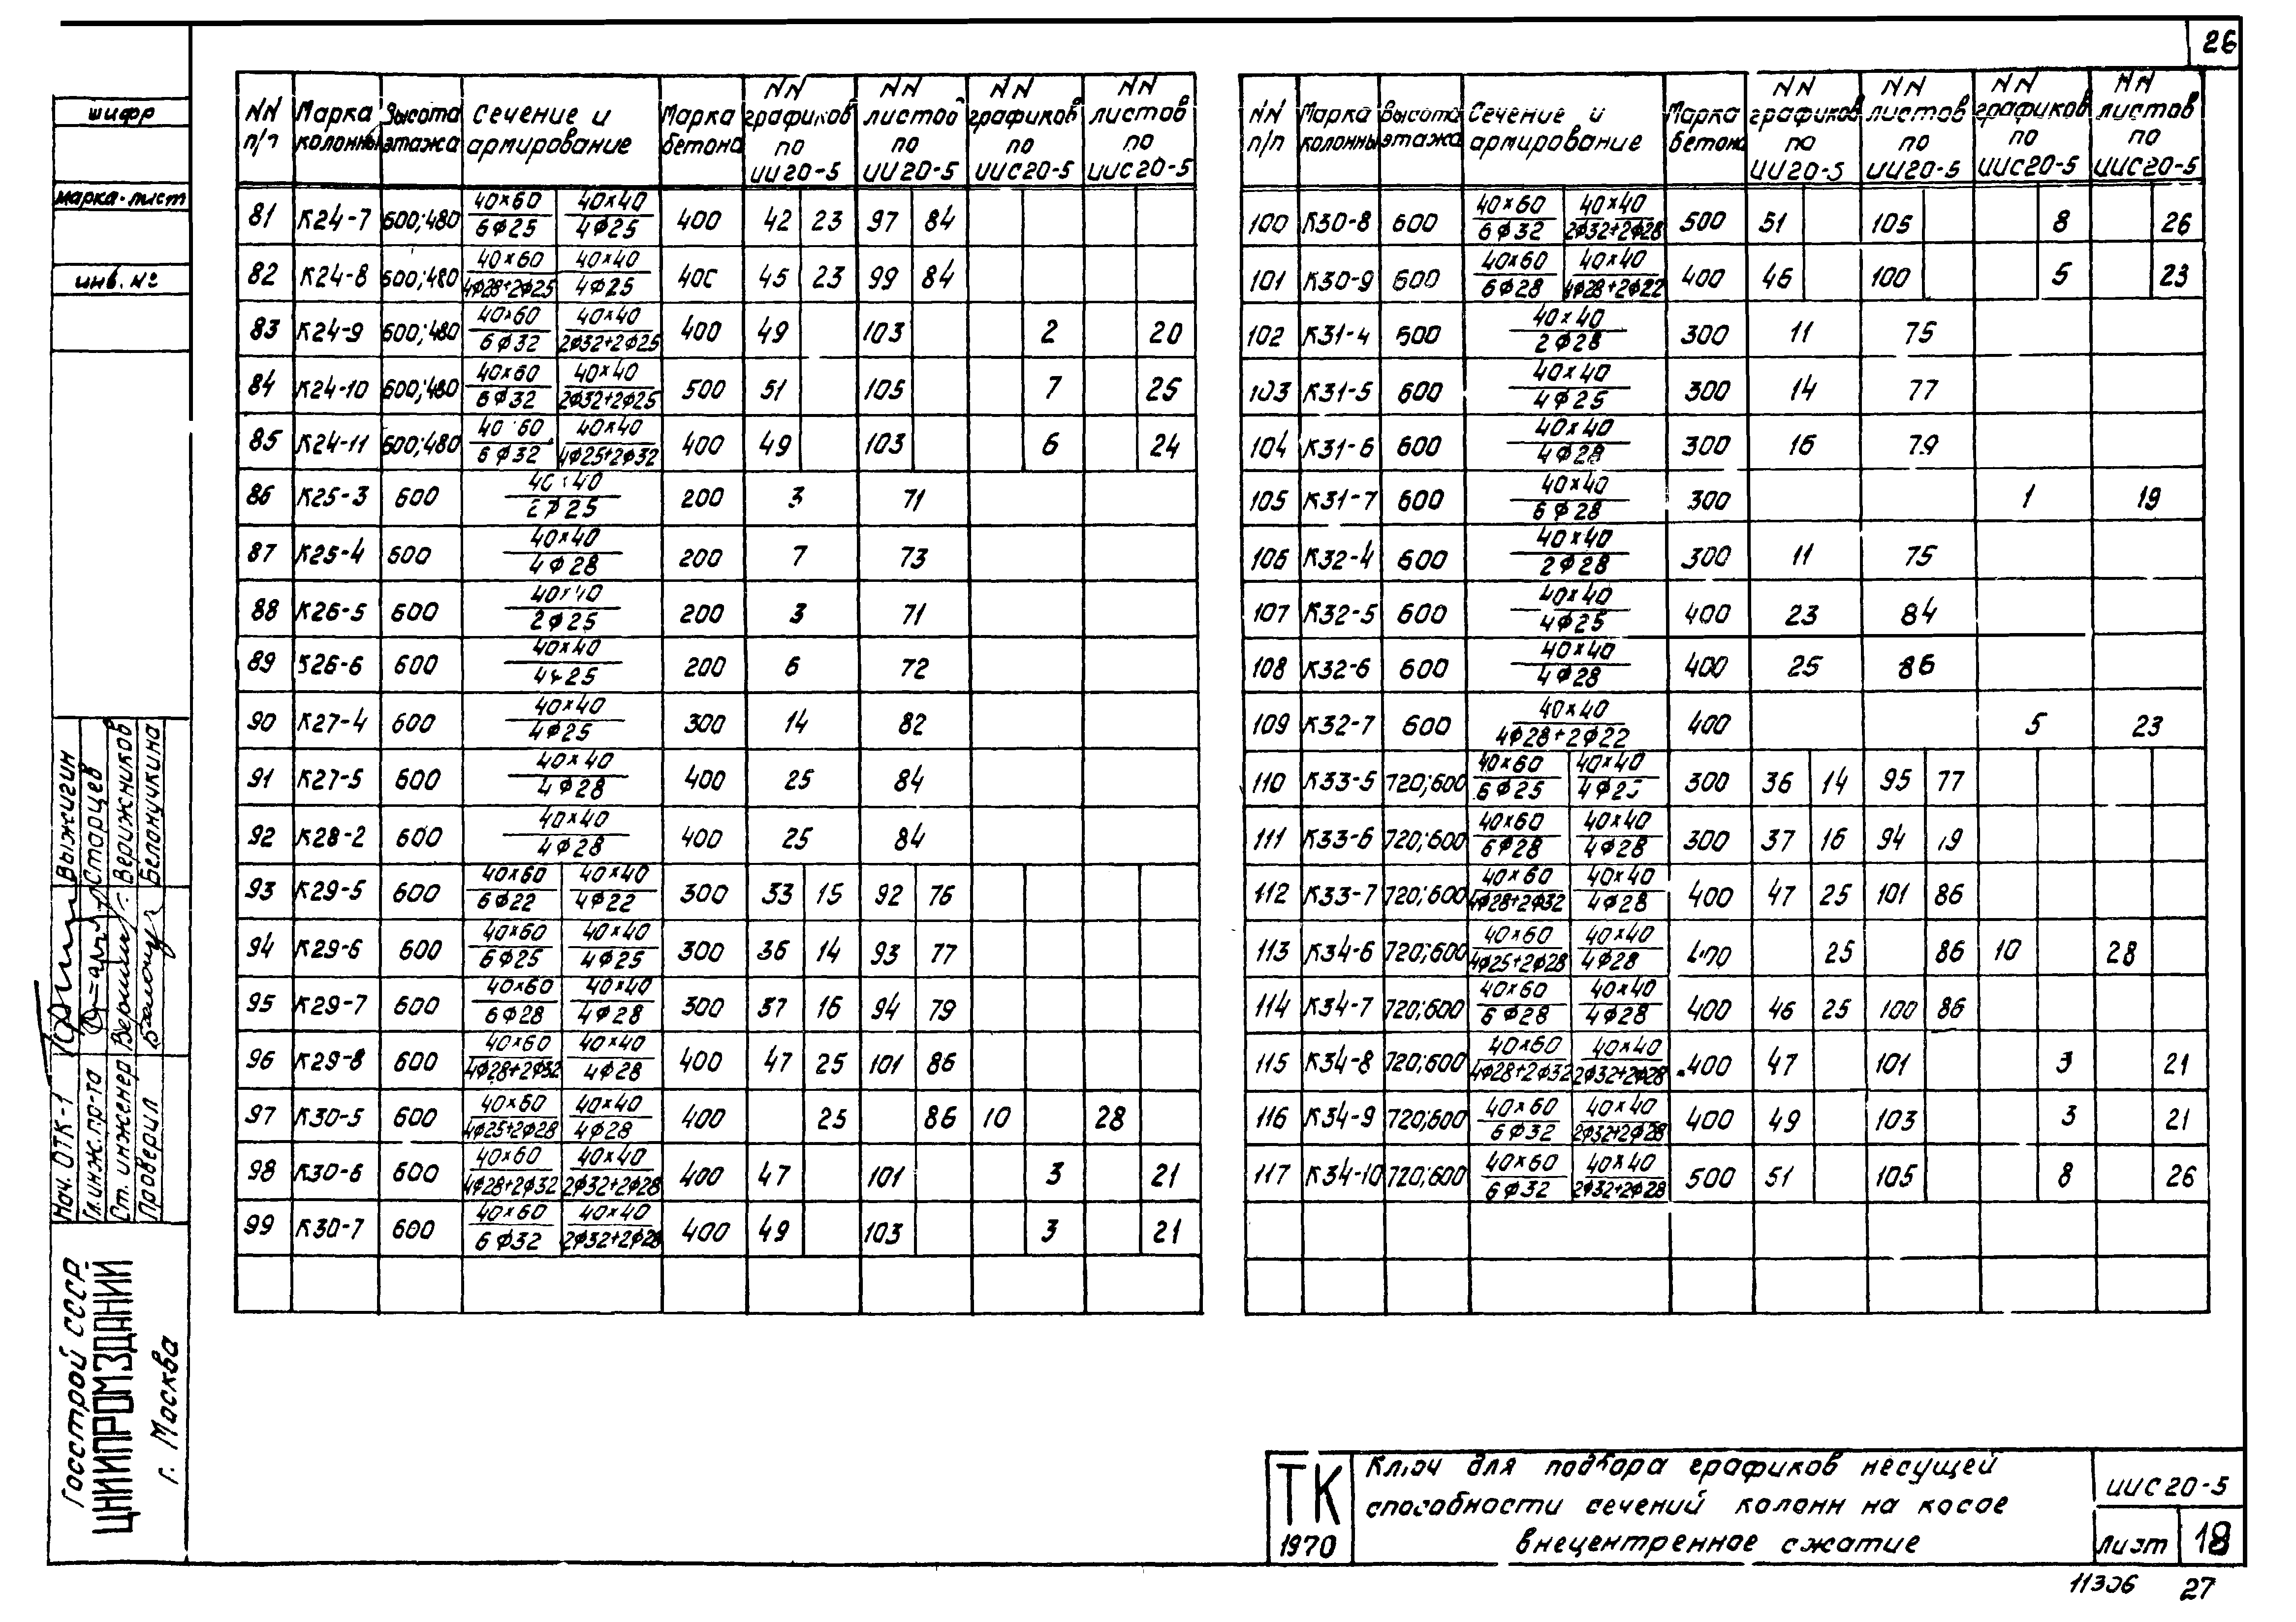 26
шифр
марка-лист
инв. №
NN п/п | Марка колонны | Высота этажа | Сечение и армирование | Марка бетона | NN графиков по ИИ20-5 | NN листов по ИИ20-5 | NN графиков по ИИС20-5 | NN листов по ИИС20-5
81 К24-7 600;480 40×60/6φ25 40×40/4φ25 400 42 23 97 84
82 К24-8 600;480 40×60/4φ28+2φ25 40×40/4φ25 400 45 23 99 84
83 К24-9 600;480 40×60/6φ32 40×40/2φ32+2φ25 400 49 103 2 20
84 К24-10 600;480 40×60/6φ32 40×40/2φ32+2φ25 500 51 105 7 25
85 К24-11 600;480 40×60/6φ32 40×40/4φ25+2φ32 400 49 103 6 24
86 К25-3 600 40×40/2φ25 200 3 71
87 К25-4 600 40×40/4φ28 200 7 73
88 К26-5 600 40×40/2φ25 200 3 71
89 К26-6 600 40×40/4φ25 200 6 72
90 К27-4 600 40×40/4φ25 300 14 82
91 К27-5 600 40×40/4φ28 400 25 84
92 К28-2 600 40×40/4φ28 400 25 84
93 К29-5 600 40×60/6φ22 40×40/4φ22 300 33 15 92 76
94 К29-6 600 40×60/6φ25 40×40/4φ25 300 36 14 93 77
95 К29-7 600 40×60/6φ28 40×40/4φ28 300 37 16 94 79
96 К29-8 600 40×60/4φ28+2φ32 40×40/4φ28 400 47 25 101 86
97 К30-5 600 40×60/4φ25+2φ28 40×40/4φ28 400 25 86 10 28
98 К30-6 600 40×60/4φ28+2φ32 40×40/2φ32+2φ28 400 47 101 3 21
99 К30-7 600 40×60/6φ32 40×40/2φ32+2φ28 400 49 103 3 21
NN п/п | Марка колонны | Высота этажа | Сечение и армирование | Марка бетона | NN графиков по ИИ20-5 | NN листов по ИИ20-5 | NN графиков по ИИС20-5 | NN листов по ИИС20-5
100 К30-8 600 40×60/6φ32 40×40/2φ32+2φ28 500 51 105 8 26
101 К30-9 600 40×60/6φ28 40×40/4φ28+2φ22 400 46 100 5 23
102 К31-4 600 40×40/2φ28 300 11 75
103 К31-5 600 40×40/4φ25 300 14 77
104 К31-6 600 40×40/4φ28 300 16 79
105 К31-7 600 40×40/6φ28 300 1 19
106 К32-4 600 40×40/2φ28 300 11 75
107 К32-5 600 40×40/4φ25 400 23 84
108 К32-6 600 40×40/4φ28 400 25 86
109 К32-7 600 40×40/4φ28+2φ22 400 5 23
110 К33-5 720;600 40×60/6φ25 40×40/4φ25 300 36 14 95 77
111 К33-6 720;600 40×60/6φ28 40×40/4φ28 300 37 16 94
112 К33-7 720;600 40×60/4φ28+2φ32 40×40/4φ28 400 47 25 101 86
113 К34-6 720;600 40×60/4φ25+2φ28 40×40/4φ28 400 25 86 10 28
114 К34-7 720;600 40×60/6φ28 40×40/4φ28 400 46 25 100 86
115 К34-8 720;600 40×60/4φ28+2φ32 40×40/2φ32+2φ28 400 47 101 3 21
116 К34-9 720;600 40×60/6φ32 40×40/2φ32+2φ28 400 49 103 3 21
117 К34-10 720;600 40×60/6φ32 40×40/2φ32+2φ28 500 51 105 8 26
Нач. ОТК-1 Выжигин
Гл.инж.пр-та Старцев
Ст. инженер Верижников
Проверил Белоручкина
Госстрой СССР
ЦНИИПРОМЗДАНИЙ
г. Москва
ТК
1970
Ключ для подбора графиков несущей
способности сечений колонн на косое
внецентренное сжатие
ИИС20-5
Лист 18
11306 27